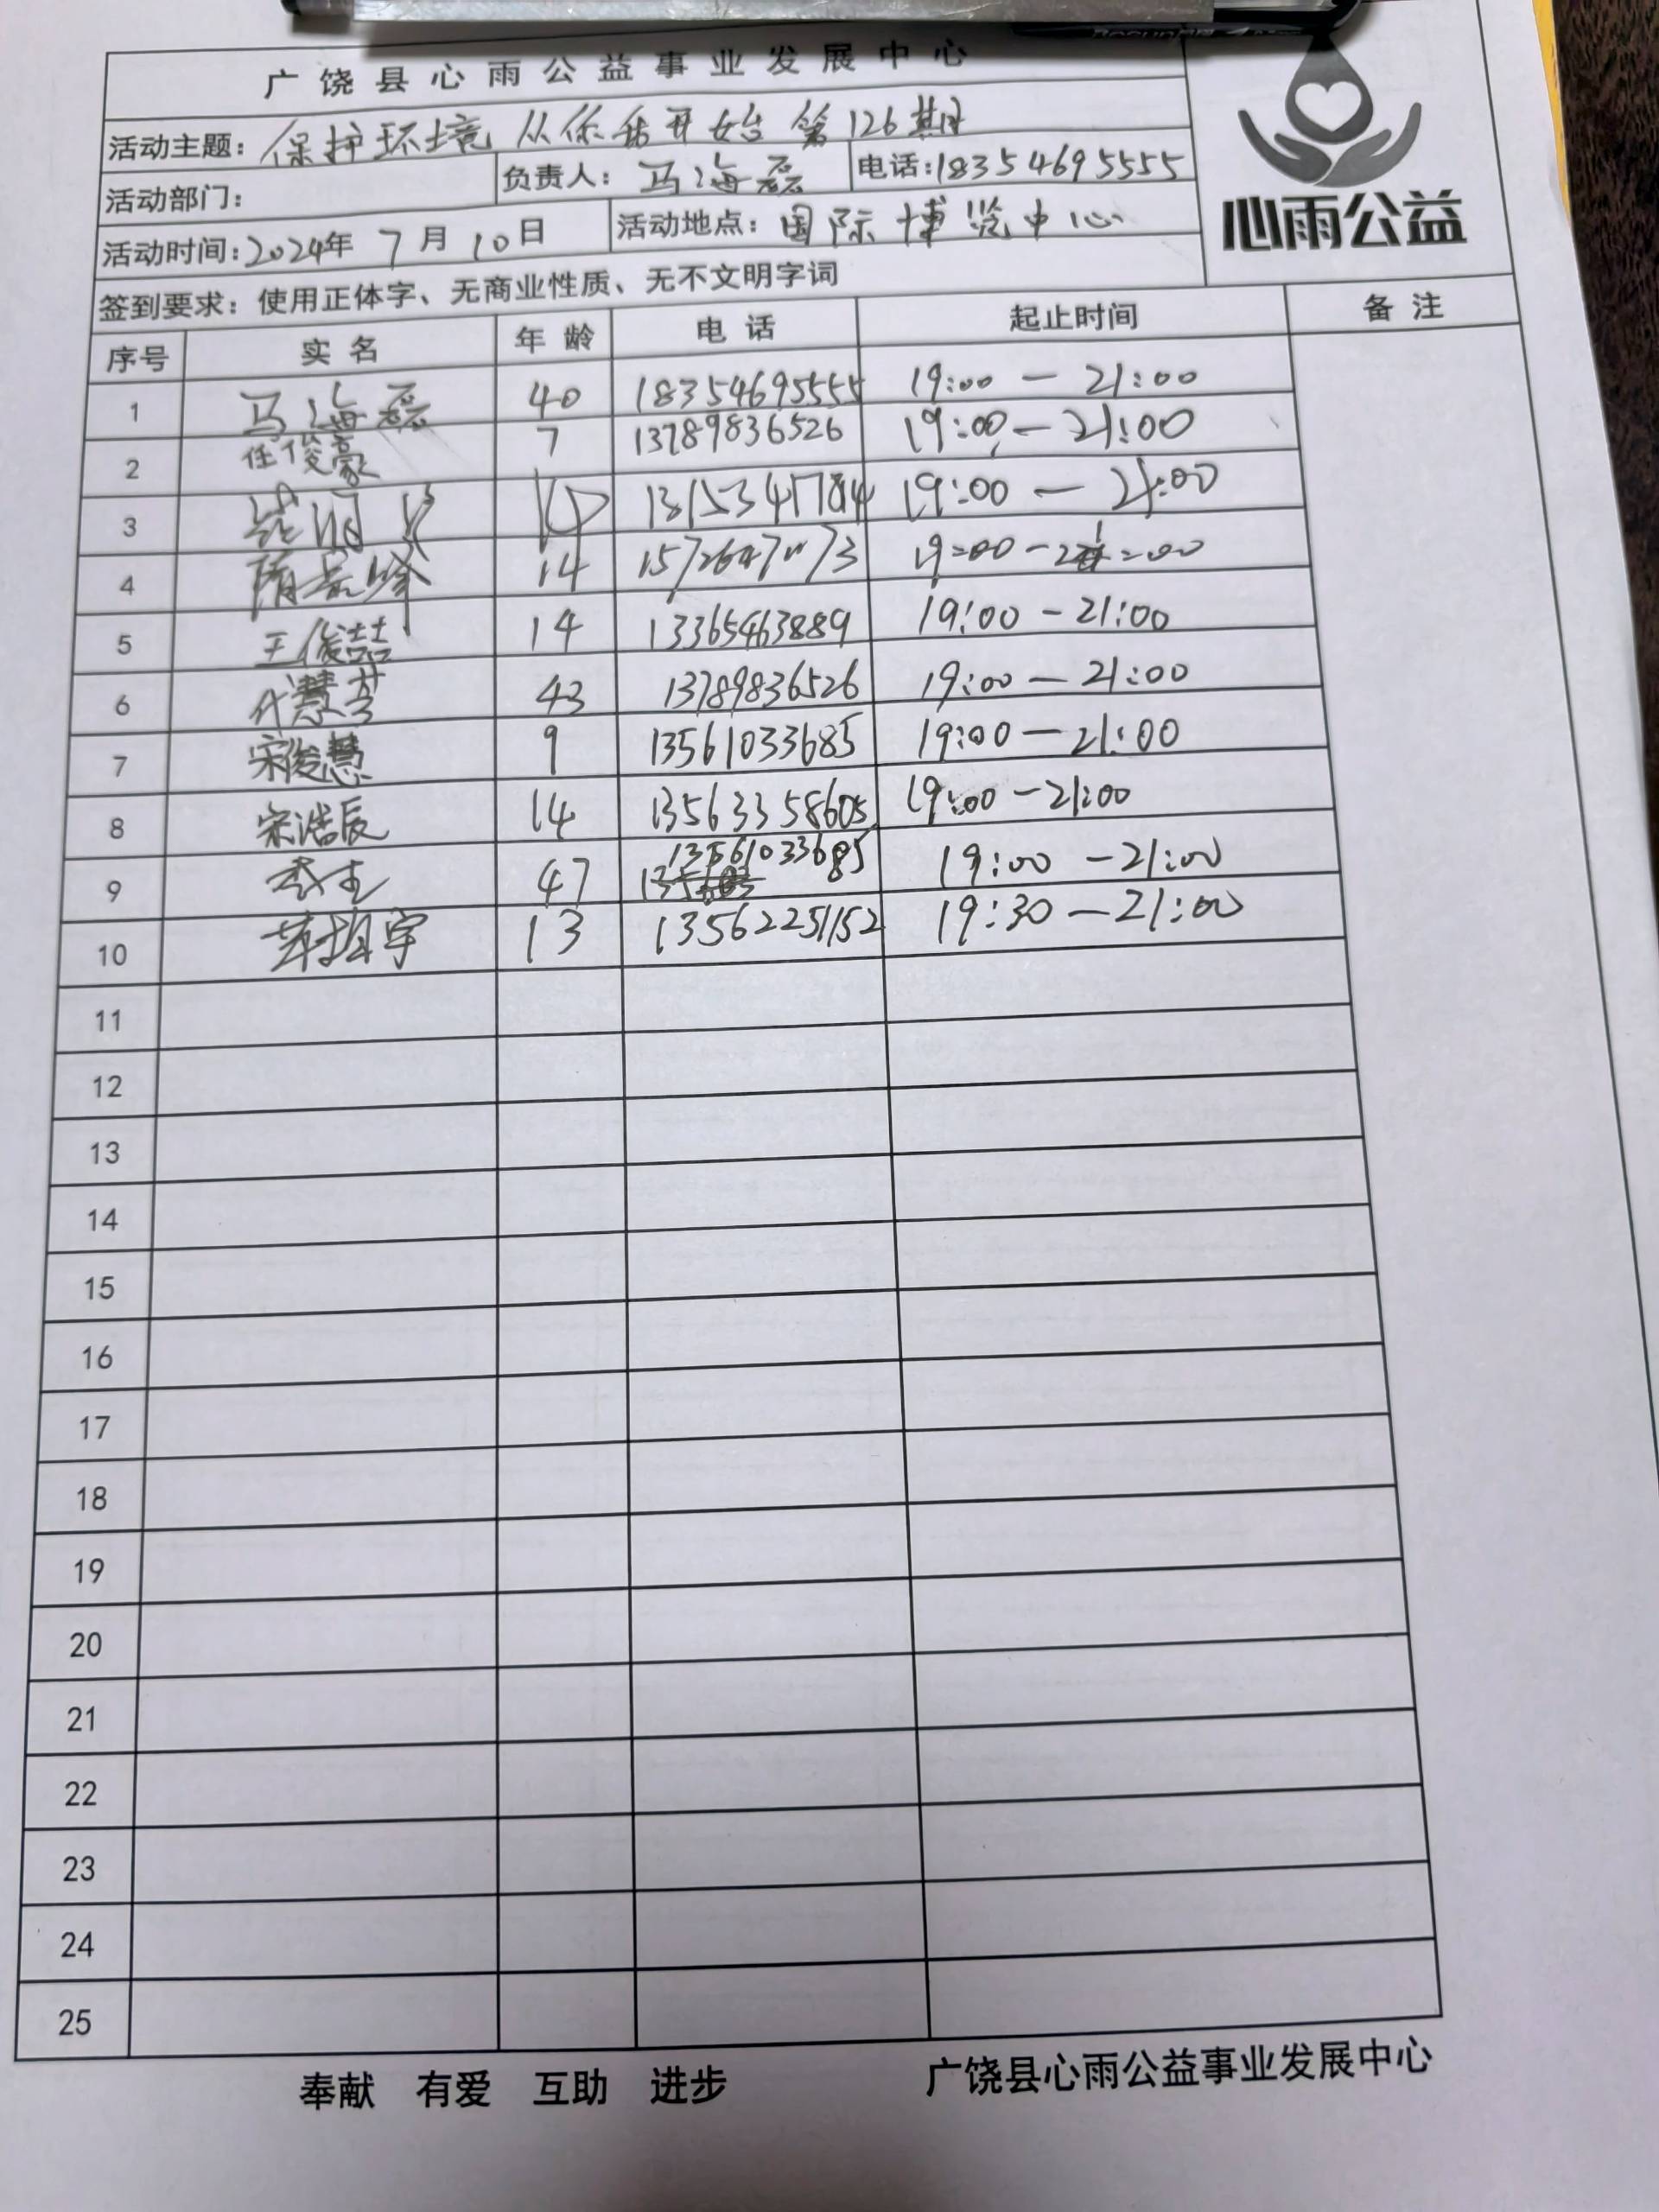 广饶县心雨公益事业发展中心
活动主题：保护环境 从你我开始 第126期
活动部门：
负责人：马海磊
电话：18354695555
心雨公益
活动时间：2024年7月10日
活动地点：国际博览中心
签到要求：使用正体字、无商业性质、无不文明字词
序号 实名 年龄 电话 起止时间 备注
1 马海磊 40 18354695555 19:00—21:00
2 任俊豪 7 13789836526 19:00—21:00
3 19:00—21:00
4 14 19:00-21:00
5 王俊喆 14 13365463889 19:00-21:00
6 代慧芳 43 13789836526 19:00—21:00
7 宋俊慧 9 13561033685 19:00—21:00
8 宋浩辰 14 13563358605 19:00-21:00
9 47 13561033685 19:00-21:00
10 13 13562251152 19:30—21:00
11
12
13
14
15
16
17
18
19
20
21
22
23
24
25
奉献 有爱 互助 进步
广饶县心雨公益事业发展中心